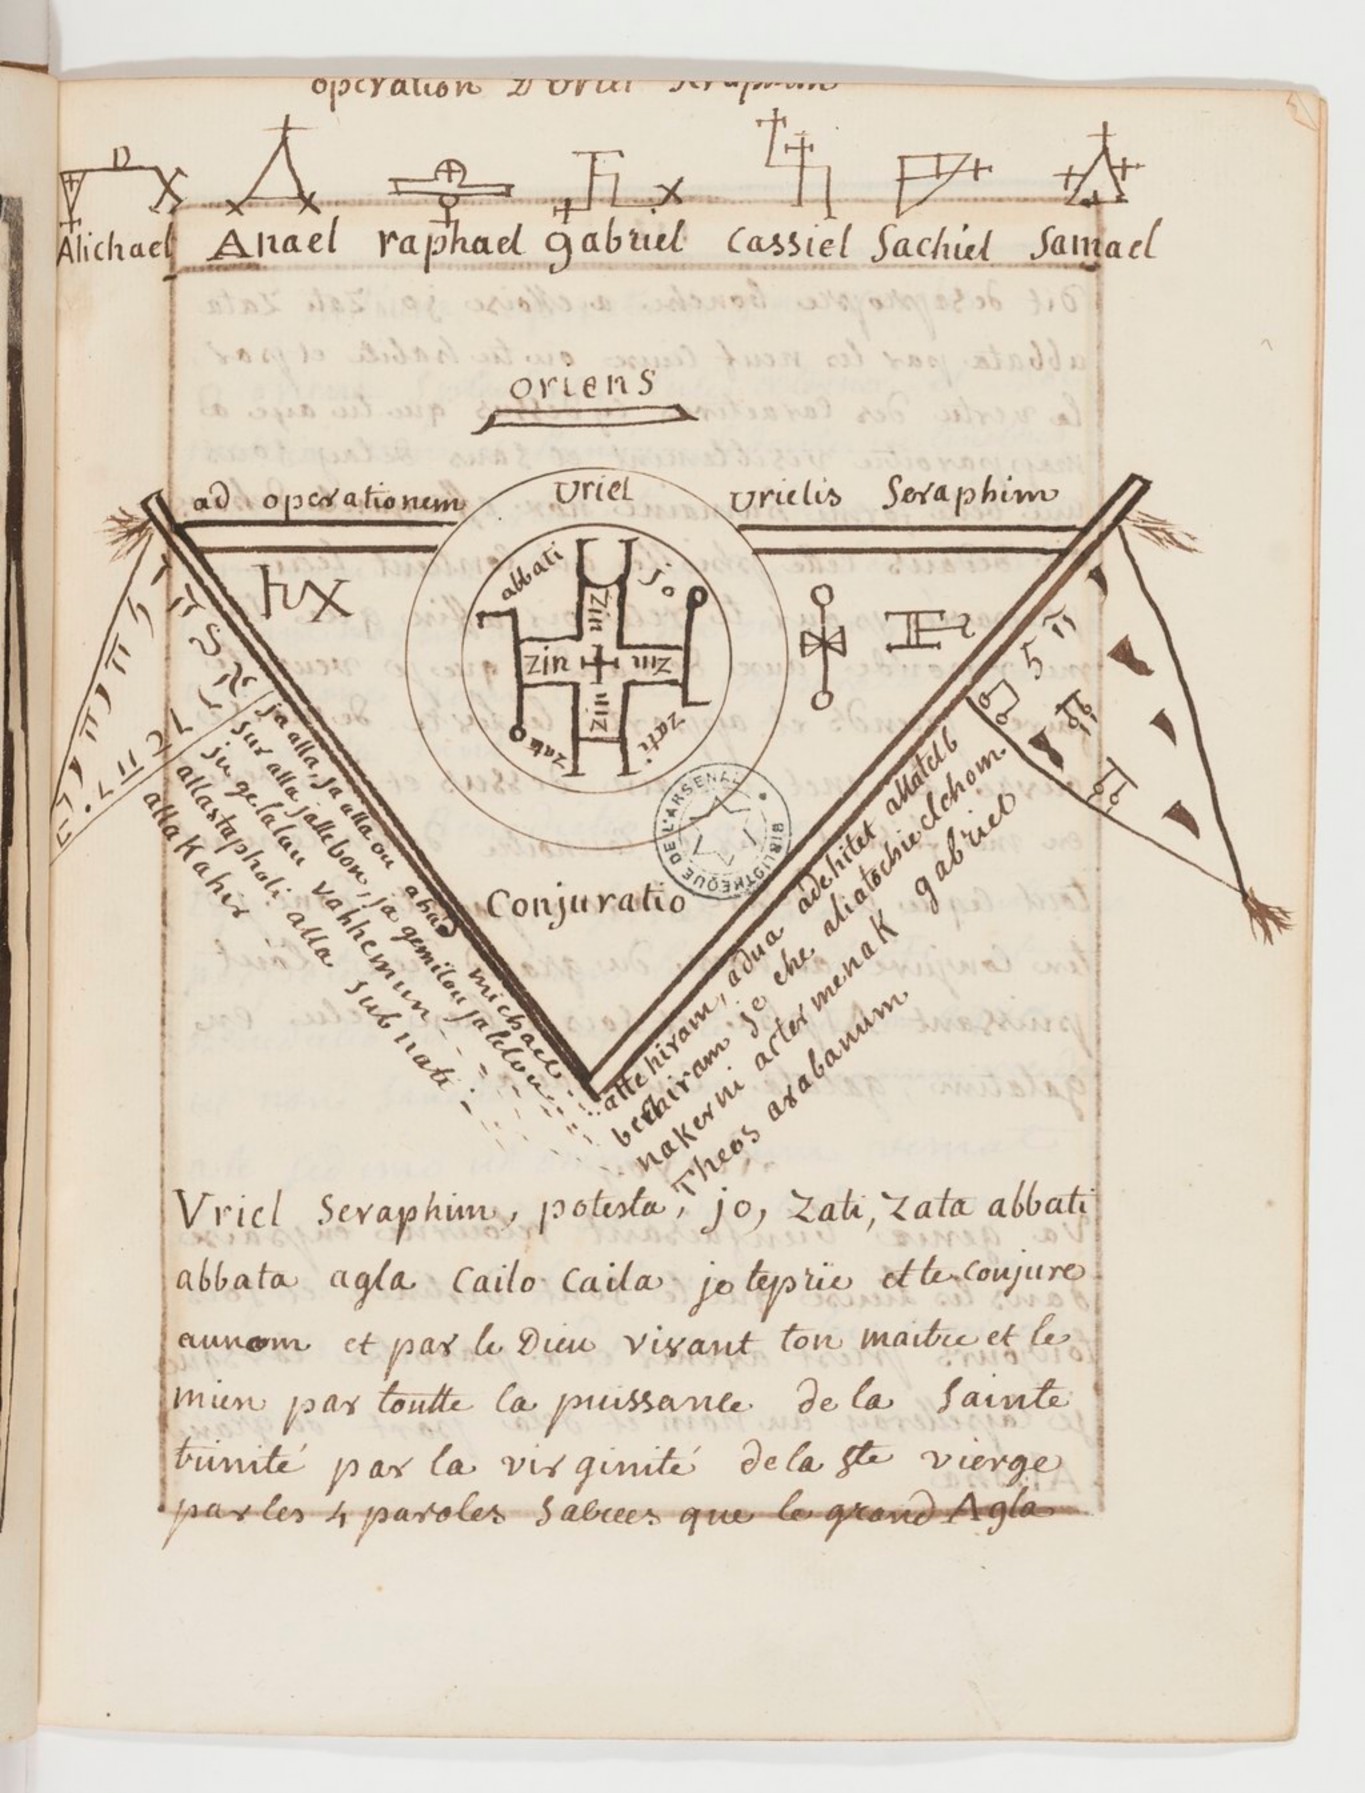 operation D'Uriel Seraphim
Michael Anael raphael gabriel cassiel Sachiel Samael
oriens
ad operationem Uriel Urielis Seraphim
abbati jo
zin
zin zin
zin
zata zati
BIBLIOTHEQUE DE L'ARSENAL
Conjuratio
ja alla, ja alla ou abad michael
sur alla jallebon, ja gemilou jalelou
ju gelalau vahhemun
allastapholi alla subnati
alla Kahir
atte hiram, adua adehitet allatelb
berhiram je che aliatochie elchom
nakerni acter menak gabriel
Theos arabanum
Uriel Seraphim, potesta, jo, Zati, Zata abbati
abbata agla Cailo Caila je te prie et te conjure
au nom et par le Dieu vivant ton maitre et le
mien par toutte la puissance de la Sainte
trinité par la virginité de la ste vierge
par les 4 paroles Sacrees que le grand Agla